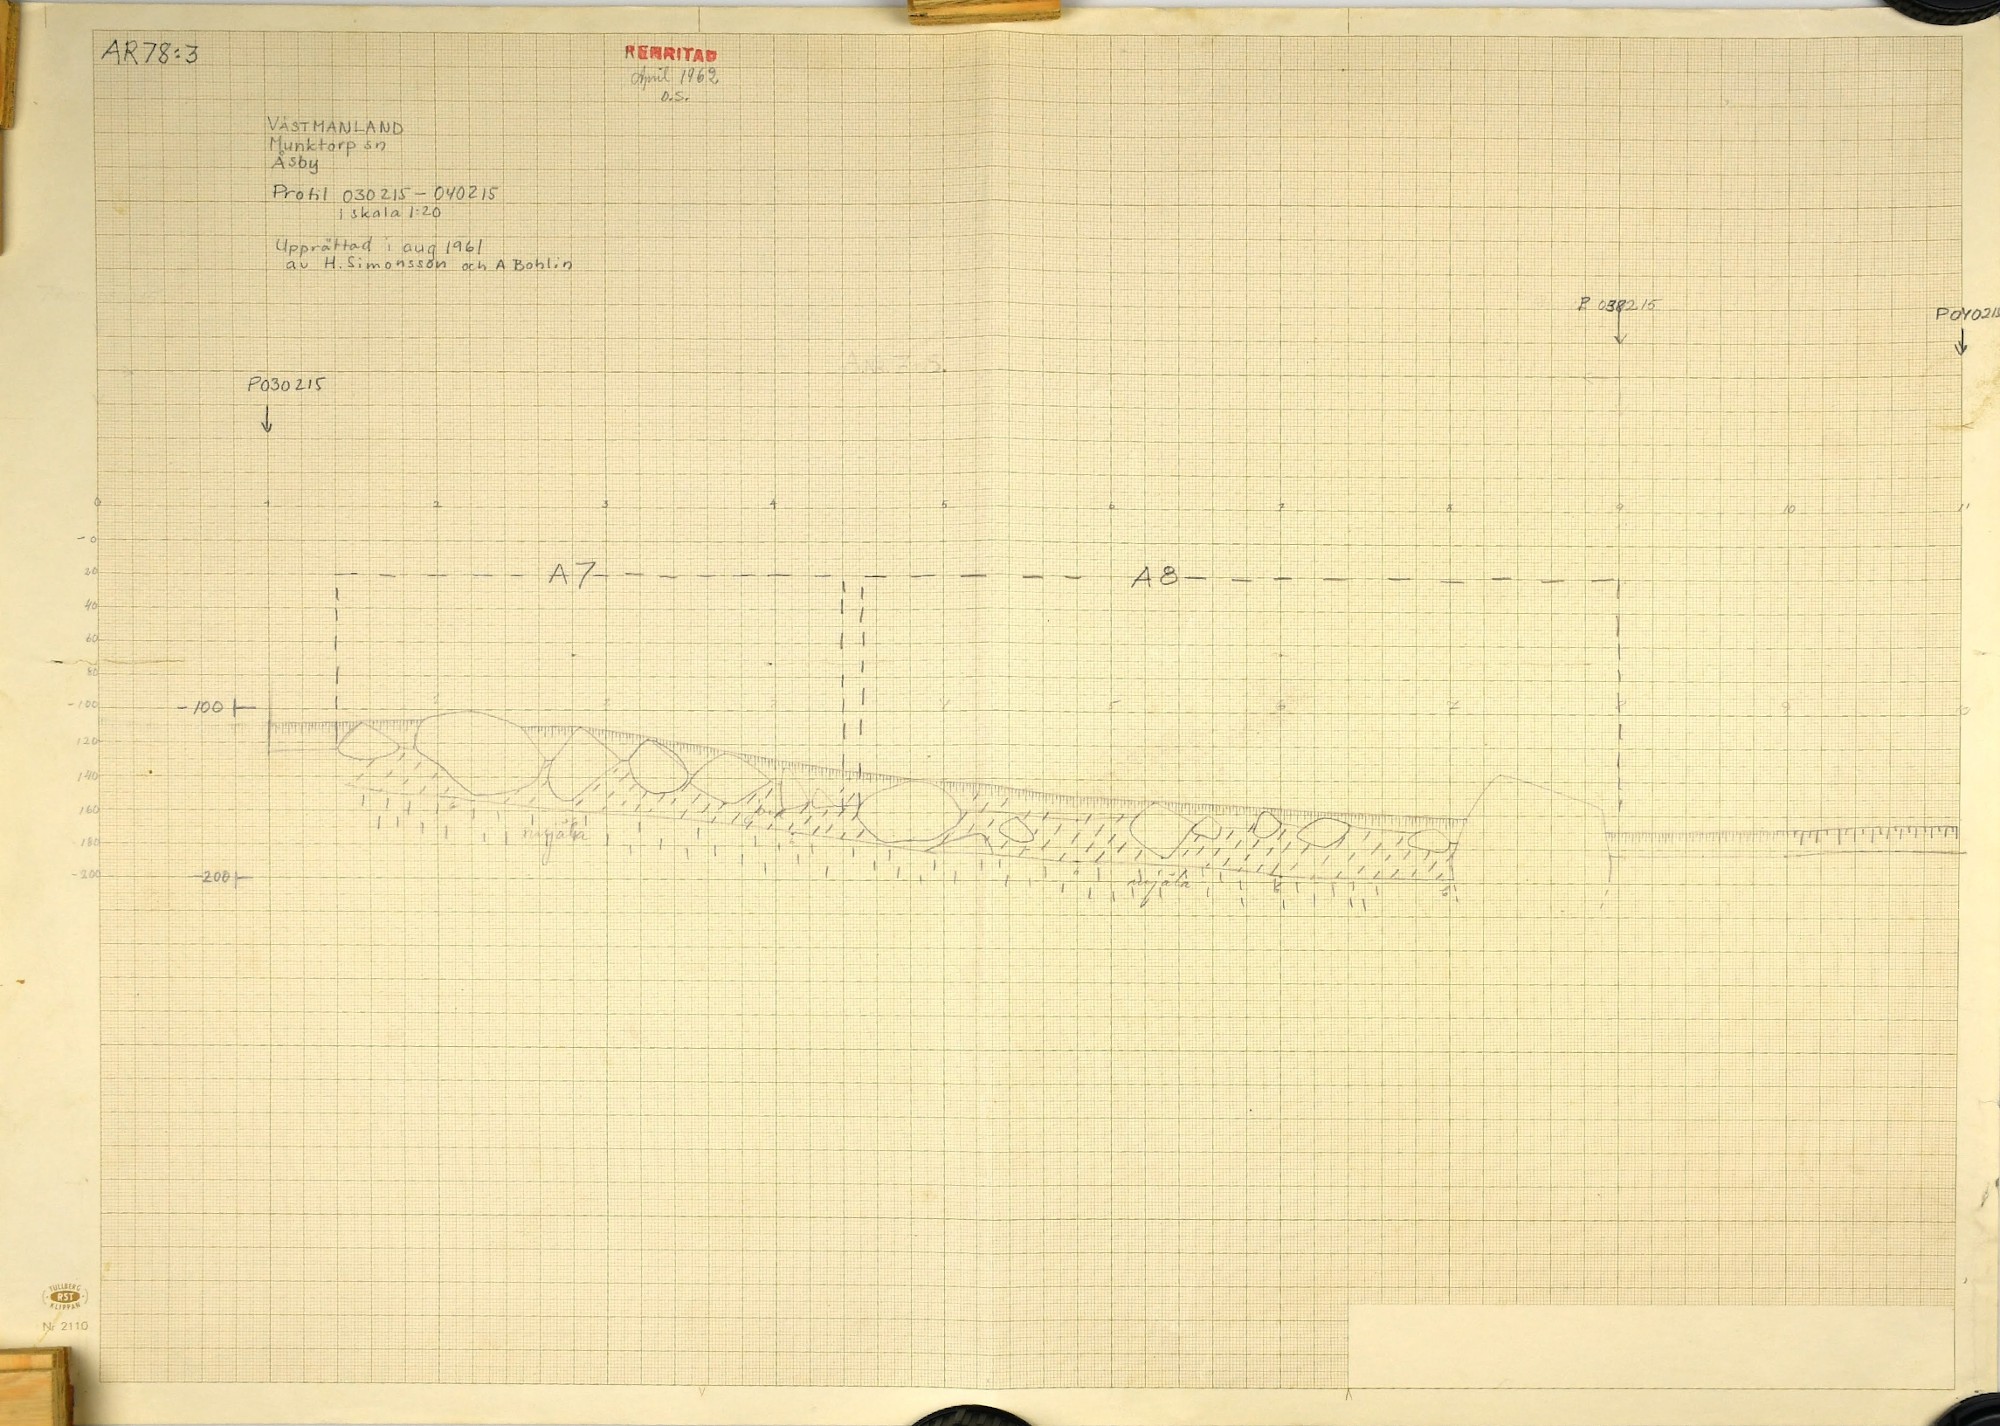 AR78:3
RENRITAD
April 1962
D.S.
VÄSTMANLAND
Munktorp sn
Åsby
Profil 030215 – 040215
i skala 1:20
Upprättad i aug 1961
av H. Simonsson och A Bohlin
P 038215
P040215
P030215
0 1 2 3 4 5 6 7 8 9 10 11
-0
20
A7 A8
40
60
80
-100 -100
120
140
160
mjäla
180
mjäla
-200 -200
TULLBERG
RST
KLIPPAN
Nr 2110